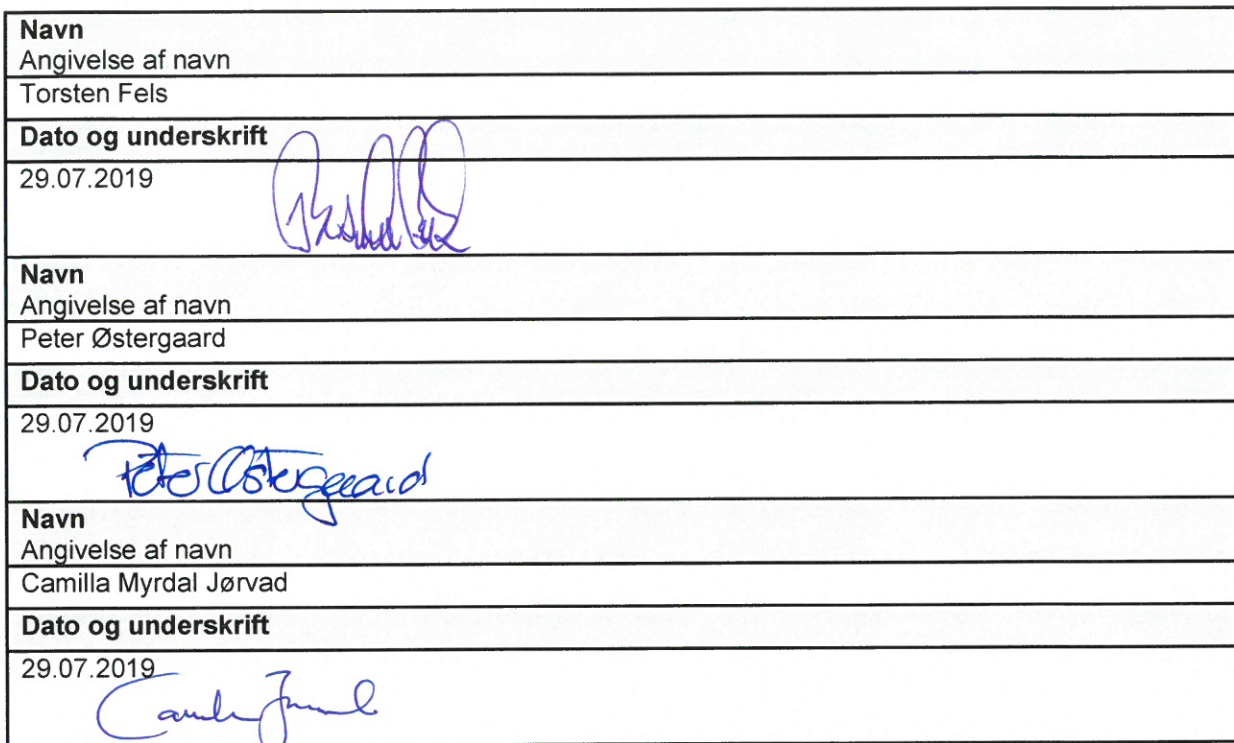 Navn
Angivelse af navn
Torsten Fels
Dato og underskrift
29.07.2019
Navn
Angivelse af navn
Peter Østergaard
Dato og underskrift
29.07.2019
Peter Østergaard
Navn
Angivelse af navn
Camilla Myrdal Jørvad
Dato og underskrift
29.07.2019